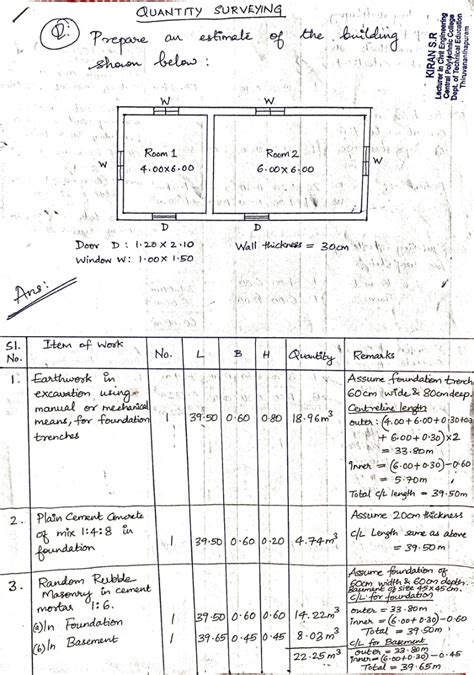 QUANTITY SURVEYING
Q: Prepare an estimate of the building
shown below:
KIRAN S.R
Lecturer in Civil Engineering
Central Polytechnic College
Dept. of Technical Education
Thiruvananthapuram
W W
W Room 1 Room 2 W
4.00x6.00 6.00x6.00
D D
Door D : 1.20 x 2.10 Wall thickness = 30cm
Window W: 1.00 x 1.50
Ans:
Sl. No. Item of Work No. L B H Quantity Remarks
1. Earthwork in
excavation using
manual or mechanical
means, for foundation
trenches
1 39.50 0.60 0.80 18.96m³
Assume foundation trench
60cm wide & 80cm deep.
Centreline length
outer : (4.00+6.00+0.30+0.3
+ 6.00+0.30)×2
= 33.80m
Inner = (6.00+0.30)-0.60
= 5.70m
Total c/L length = 39.50m
2. Plain Cement Concrete
of mix 1:4:8 in
foundation
1 39.50 0.60 0.20 4.74m³
Assume 20cm thickness
C/L Length same as above
= 39.50m
3. Random Rubble
Masonry in cement
mortar 1:6.
(a) In Foundation 1 39.50 0.60 0.60 14.22m³
(b) In Basement 1 39.65 0.45 0.45 8.03m³
22.25m³
Assume foundation of
60cm width & 60cm depth.
Basement of size 45x45cm.
C/L for foundation
outer = 33.80m
inner = (6.00+0.30)-0.60
Total = 39.50m
C/L for Basement
outer = 33.80m
inner = (6.00+0.30)-0.45
Total = 39.65m